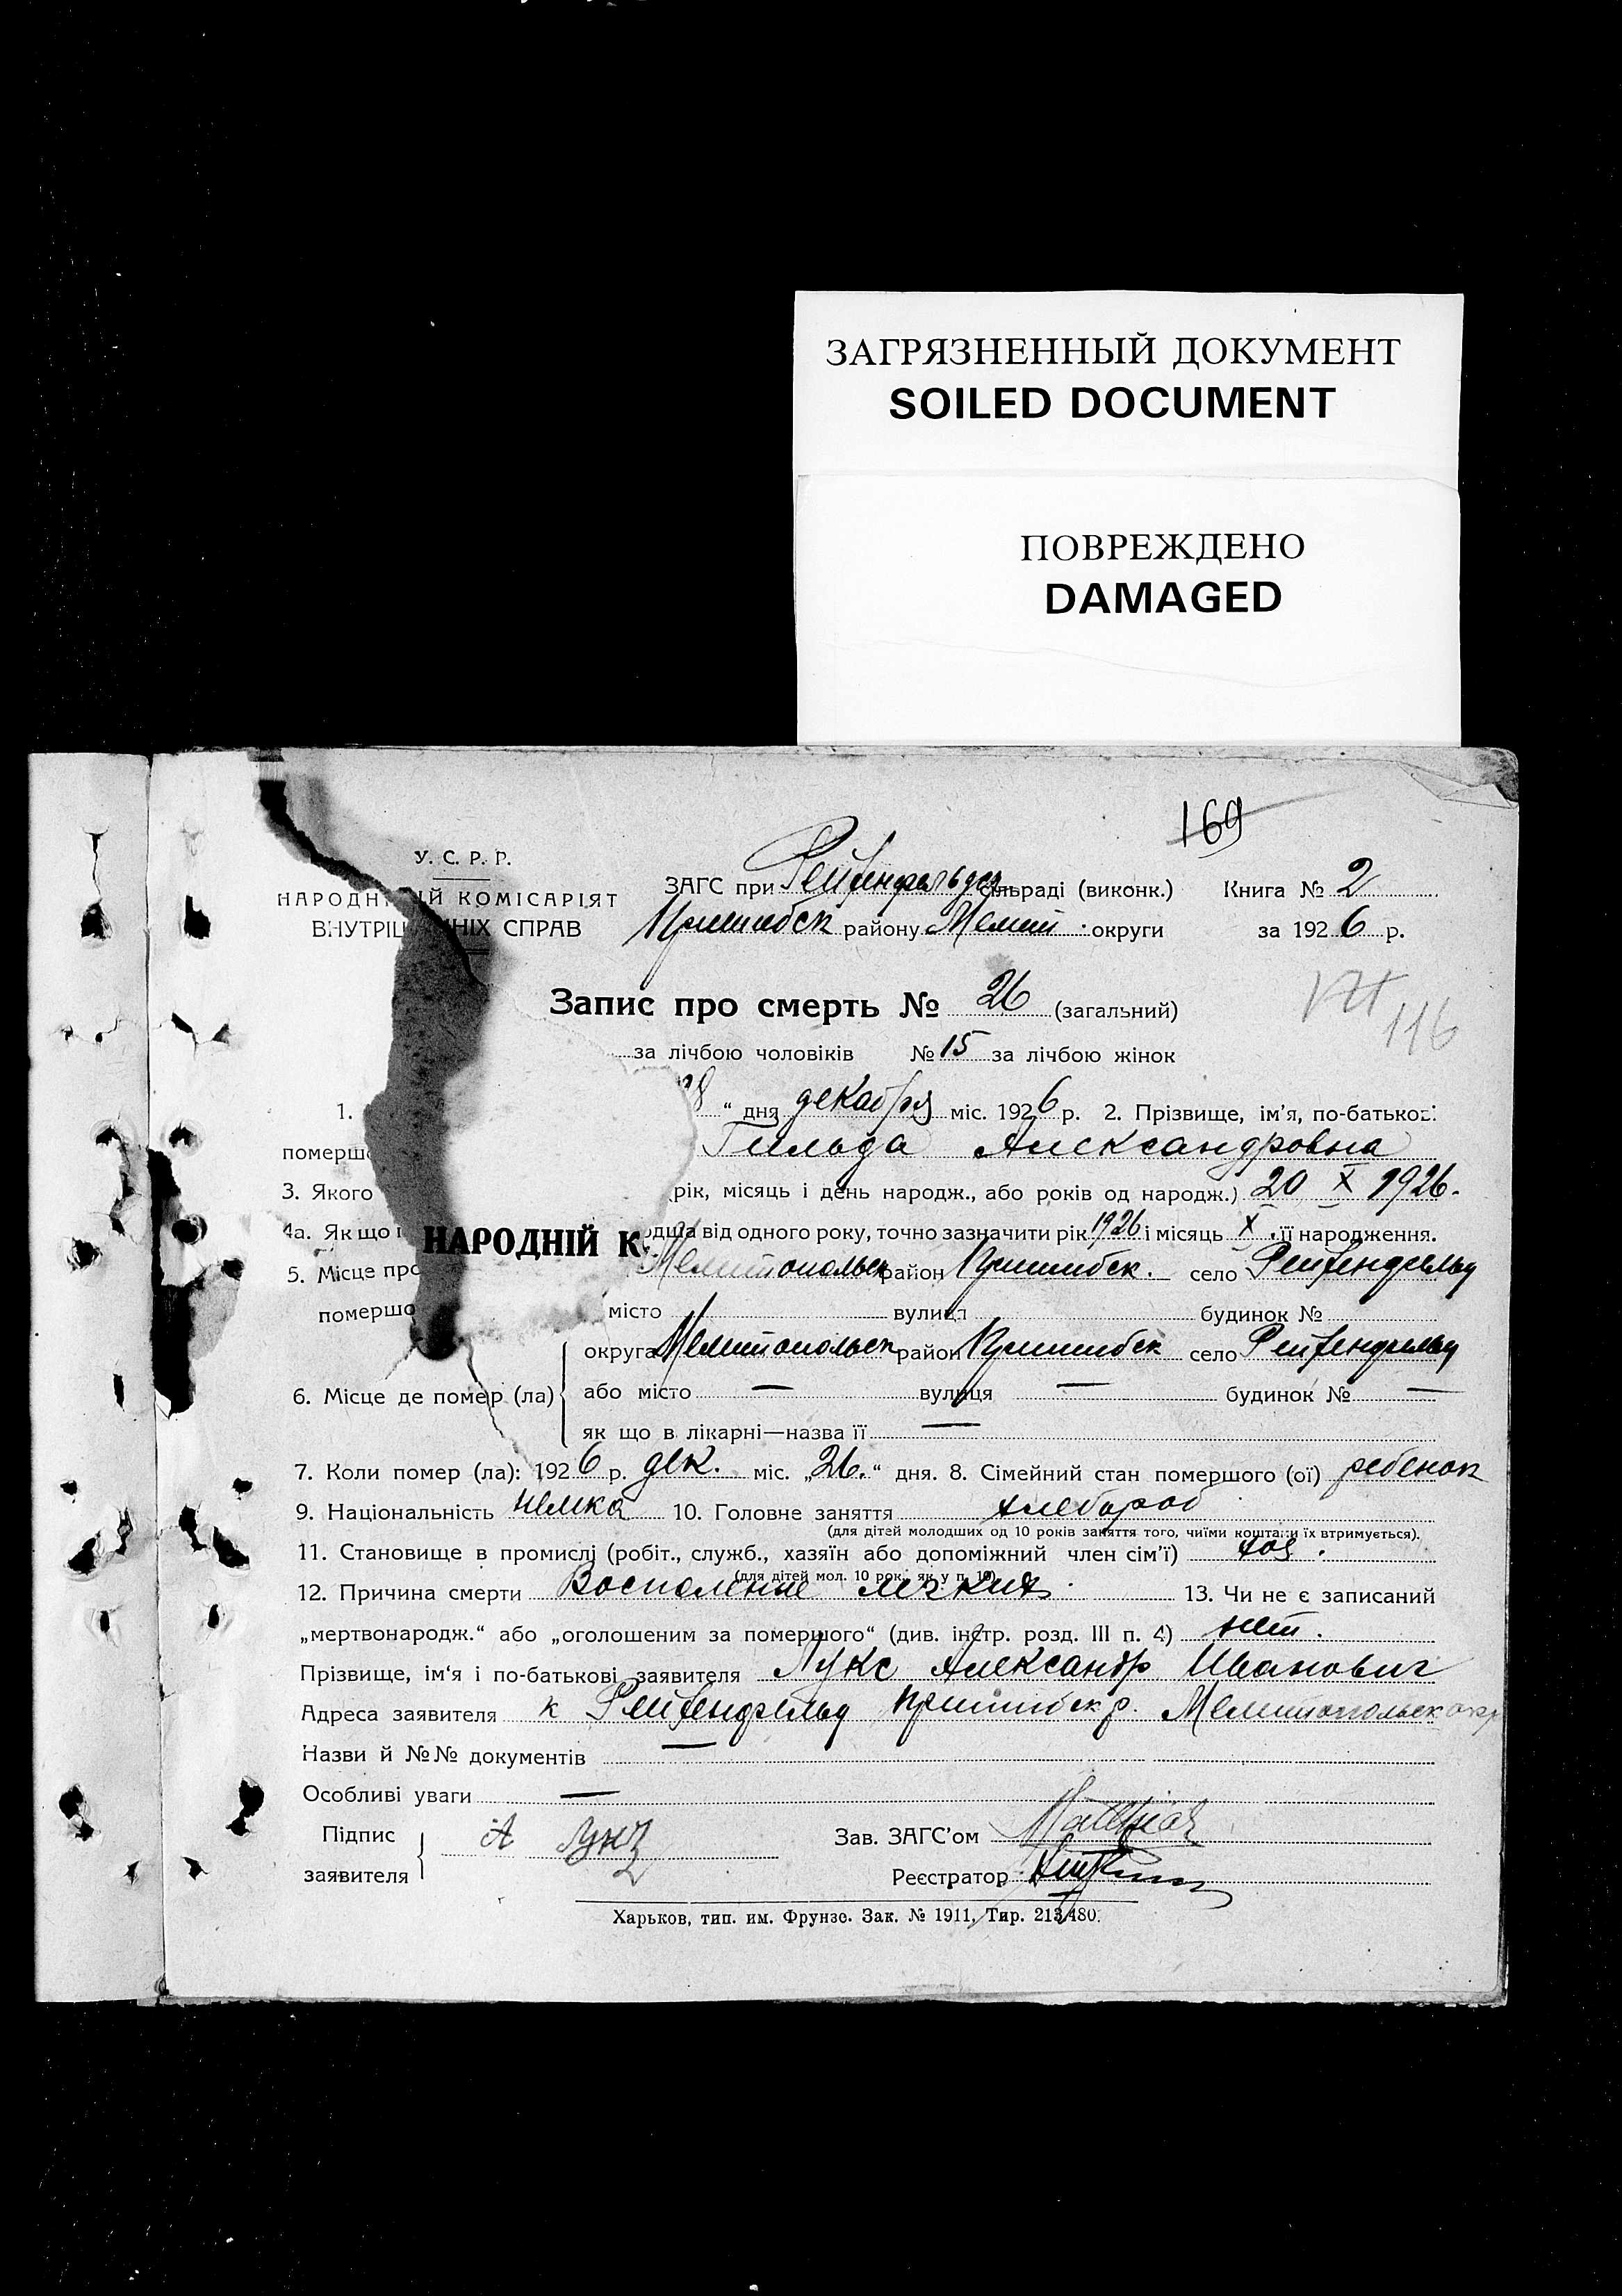 ЗАГРЯЗНЕННЫЙ ДОКУМЕНТ
SOILED DOCUMENT
ПОВРЕЖДЕНО
DAMAGED
169
У. С. Р. Р.
НАРОДН ІЙ КОМІСАРІЯТ
ВНУТРІШ НІХ СПРАВ
ЗАГС при сільраді (виконк.) Книга № 2
Пришибск району Мелит. округи за 1926 р.
Запис про смерть № 26 (загальний)
116
за лічбою чоловіків № 15 за лічбою жінок
1. 28 “ дня декабря міс. 1926 р. 2. Прізвище, ім’я, по-батькові
помершо Гильда Александровна
3. Якого (рік, місяць і день народж., або років од народж.) 20 X 1926.
4а. Як що п одша від одного року, точно зазначити рік 1926 і місяць X її народження.
НАРОДНІЙ К
5. Місце про Мелитопольск район Пришибск. село Рейхенфельд
помершо місто вулиця будинок №
округа Мелитопольск район Пришибск село Рейхенфельд
6. Місце де помер (ла) або місто — вулиця — будинок № —
як що в лікарні—назва її —
7. Коли помер (ла): 1926 р. дек. міс. „26.“ дня. 8. Сімейний стан помершого (ої) ребенок
9. Національність немка 10. Головне заняття хлебороб
(для дітей молодших од 10 років заняття того, чиїми коштами їх втримується).
11. Становище в промислі (робіт., служб., хазяїн або допоміжний член сім’ї) хоз.
(для дітей мол. 10 рок. як у п. 10)
12. Причина смерти Воспаление легких. 13. Чи не є записаний
„мертвонародж.“ або „оголошеним за помершого“ (див. інстр. розд. III п. 4) нет.
Прізвище, ім‘я і по-батькові заявителя Лукс Александр Иванович
Адреса заявителя к Рейхенфельд Пришибск р. Мелитопольск окр
Назви й №№ документів —
Особливі уваги —
Підпис заявителя А Лукс
Зав. ЗАГС’ом
Реєстратор
Харьков, тип. им. Фрунзе. Зак. № 1911, Тир. 213,480.